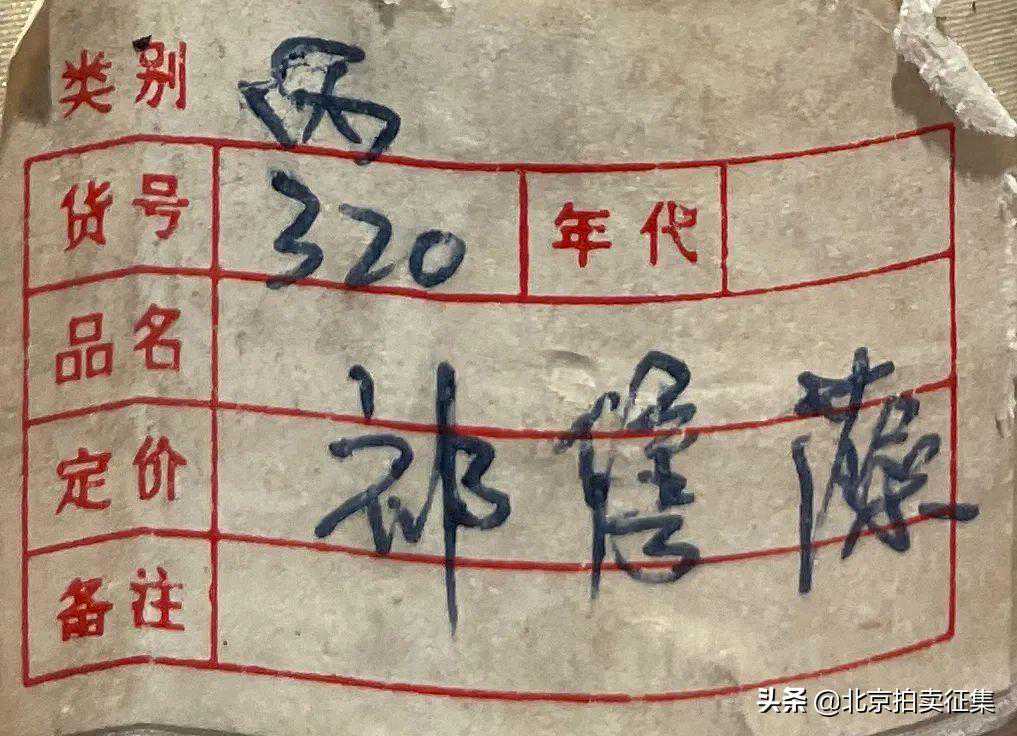 类别 丙
货号 320 年代
品名
祁 藻
定价
备注
头条 @北京拍卖征集